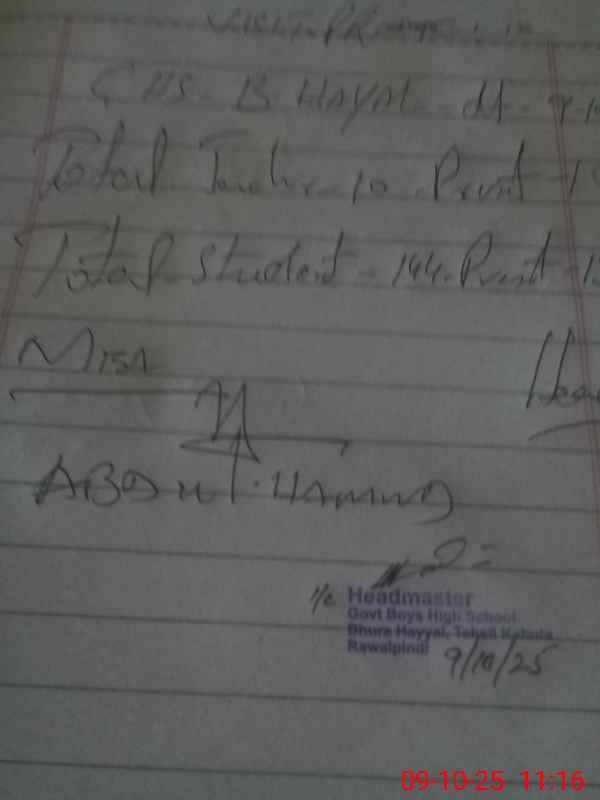 VISIT PR
GHS. B HAYAL. dt. 9-1
Total Teacher 10. Prsnt - 1
Total Student - 144. Prsnt - 1
Hea
ABDUL HAMEED
I/c Headmaster
Govt Boys High School
Bhura Hayyal, Tehsil Kahuta
Rawalpindi 9/10/25
09-10-25 11:16